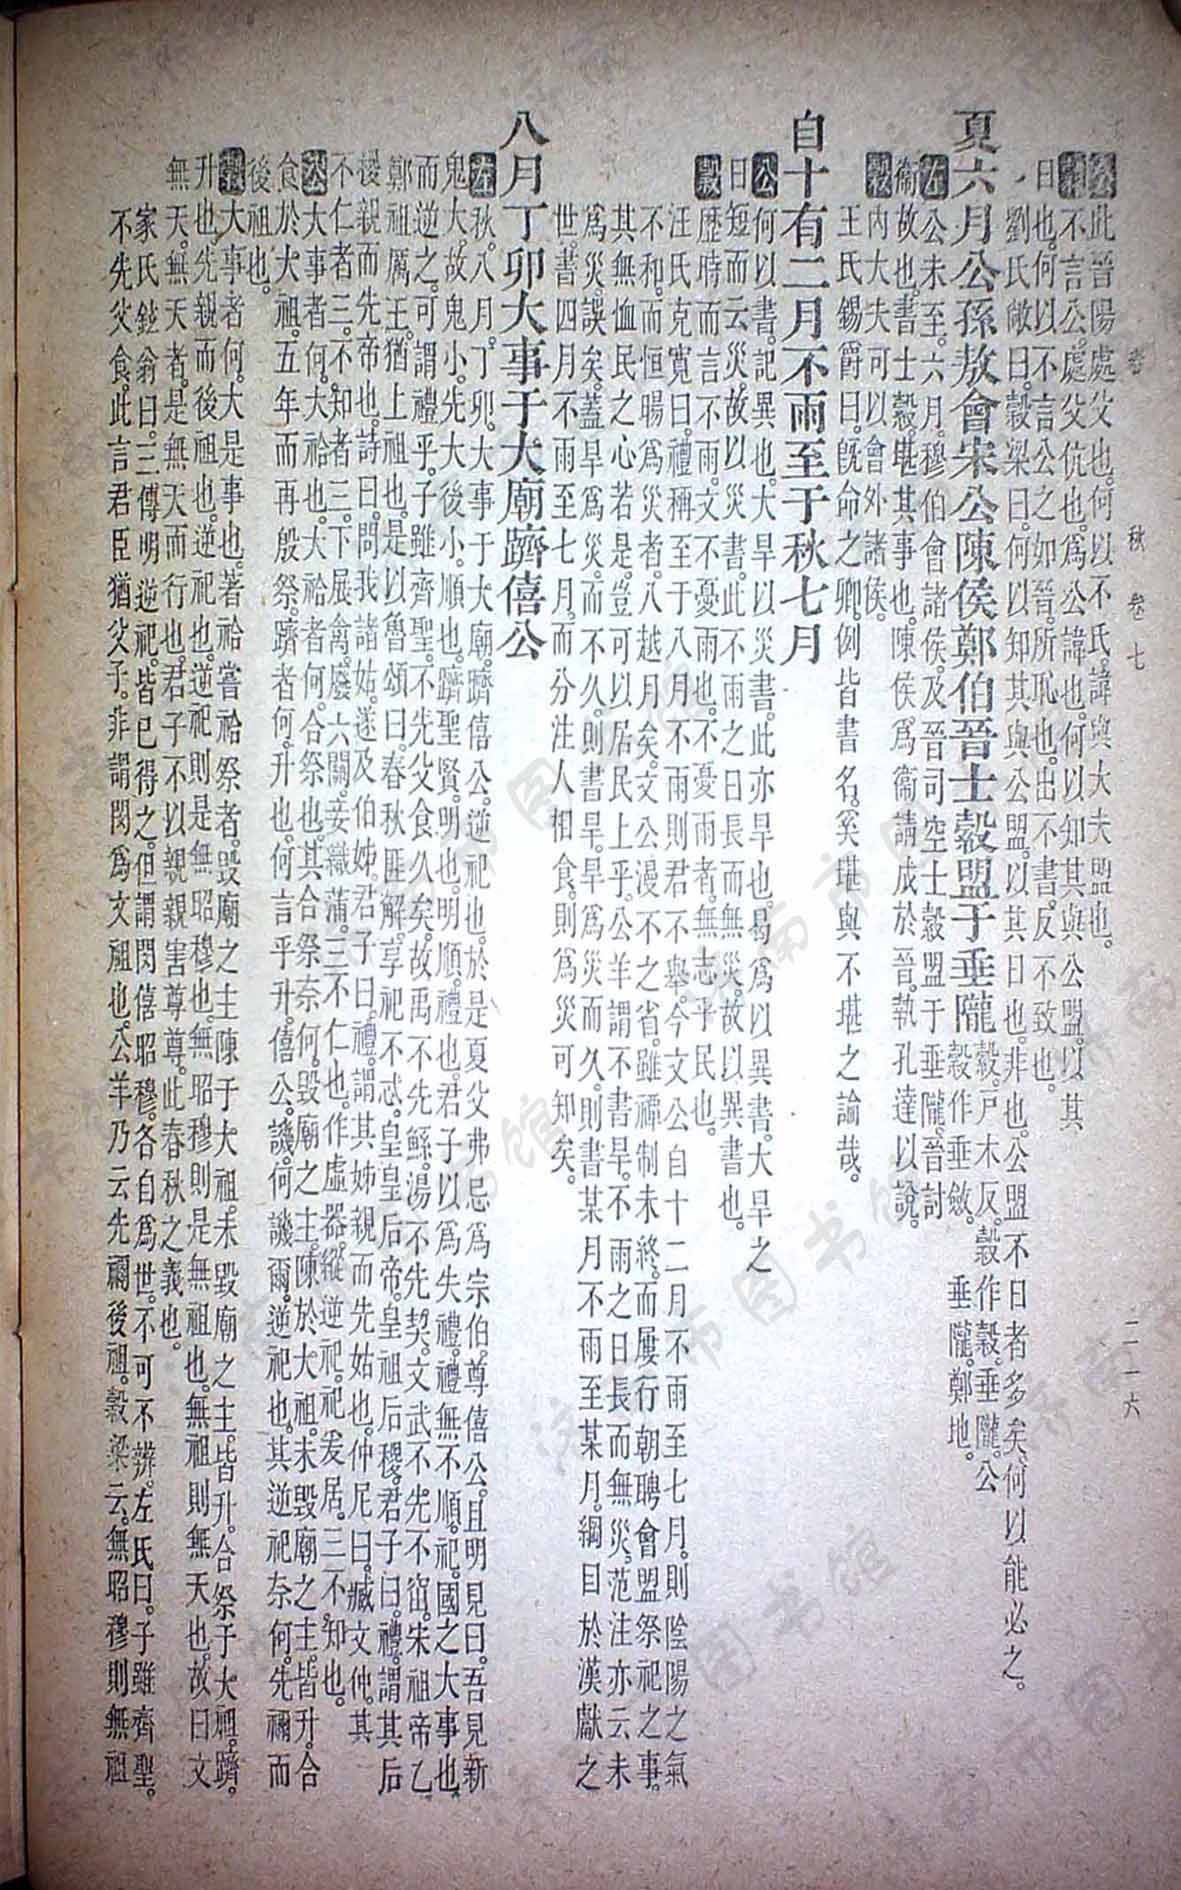 春 秋 卷七 二一六
公 此晉陽處父也。何以不氏。諱與大夫盟也。
穀 不言公。處父伉也。爲公諱也。何以知其與公盟。以其
日也。何以不言公之如晉。所恥也。出不書。反不致也。
劉氏敞曰。穀梁曰。何以知其與公盟。以其日也。非也。公盟不日者多矣。何以能必之。
夏六月公孫敖會宋公陳侯鄭伯晉士縠盟于垂隴 縠。戶木反。穀作穀。垂隴。公穀作垂斂。垂隴。鄭地。
左 公未至。六月。穆伯會諸侯。及晉司空士縠盟于垂隴。晉討
衞故也。書士縠。堪其事也。陳侯爲衞請成於晉。執孔達以說。
穀 內大夫可以會外諸侯。
王氏錫爵曰。旣命之卿。例皆書名。奚堪與不堪之論哉。
自十有二月不雨至于秋七月
公 何以書。記異也。大旱以災書。此亦旱也。曷爲以異書。大旱之
日短而云災。故以災書。此不雨之日長而無災。故以異書也。
穀 歷時而言不雨。文不憂雨也。不憂雨者。無志乎民也。
汪氏克寬曰。禮稱至于八月不雨則君不舉。今文公自十二月不雨至七月。則陰陽之氣
不和。而恒暘爲災者。八越月矣。文公漫不之省。雖禫制未終。而屢行朝聘會盟祭祀之事。
其無恤民之心若是。豈可以居民上乎。公羊謂不書旱。不雨之日長而無災。范注亦云未
爲災誤矣。蓋旱爲災。而不久。則書旱。旱爲災而久。則書某月不雨至某月。綱目於漢獻之
世。書四月不雨至七月。而分注人相食。則爲災可知矣。
八月丁卯大事于大廟躋僖公
左 秋。八月。丁卯。大事于大廟。躋僖公。逆祀也。於是夏父弗忌爲宗伯。尊僖公。且明見曰。吾見新
鬼大。故鬼小。先大後小。順也。躋聖賢。明也。明順。禮也。君子以爲失禮。禮無不順。祀。國之大事也。
而逆之。可謂禮乎。子雖齊聖。不先父食久矣。故禹不先鯀。湯不先契。文武不先不窋。宋祖帝乙。
鄭祖厲王。猶上祖也。是以魯頌曰。春秋匪解。享祀不忒。皇皇后帝。皇祖后稷。君子曰。禮。謂其后
稷親而先帝也。詩曰。問我諸姑。遂及伯姊。君子曰。禮。謂其姊親而先姑也。仲尼曰。臧文仲。其
不仁者三。不知者三。下展禽。廢六關。妾織蒲。三不仁也。作虛器。縱逆祀。祀爰居。三不知也。
公 大事者何。大祫也。大祫者何。合祭也。其合祭奈何。毀廟之主。陳於大祖。未毀廟之主。皆升。合
食於大祖。五年而再殷祭。躋者何。升也。何言乎升。僖公。譏。何譏爾。逆祀也。其逆祀奈何。先禰而
後祖也。
穀 大事者何。大是事也。著祫嘗。祫祭者。毀廟之主陳于大祖。未毀廟之主。皆升。合祭于大祖。躋。
升也。先親而後祖也。逆祀也。逆祀則是無昭穆也。無昭穆則是無祖也。無祖則無天也。故曰文
無天。無天者。是無天而行也。君子不以親親害尊尊。此春秋之義也。
家氏鉉翁曰。三傳明逆祀。皆已得之。但謂閔僖昭穆。各自爲世。不可不辨。左氏曰。子雖齊聖。
不先父食。此言君臣猶父子。非謂閔爲文祖也。公羊乃云先禰後祖。穀梁云。無昭穆則無祖